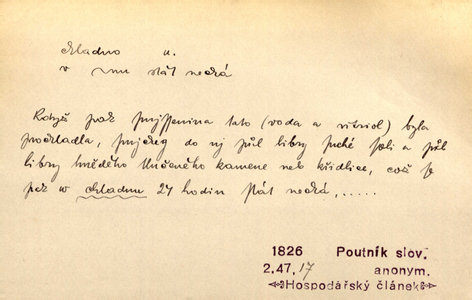 chladno n.
v mu stát nechá
Kdyžž pak smjssenina tato (voda a vitriol) byla
prochladla, smjcheg do nj půl libry suché soli a půl
libry hnědého tlučeného kamene neb křidlice, což se
pak w chladnu 24 hodin stát nechá, . . . . .
1826 Poutník slov.
2.47,17 anonym.
Hospodářský článek